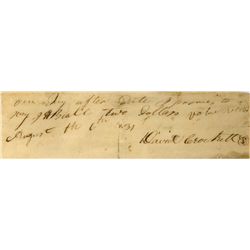 one day after date I promis to
pay J. Beatt two Dollars value Recd
August the 6th 1831
David Crockett